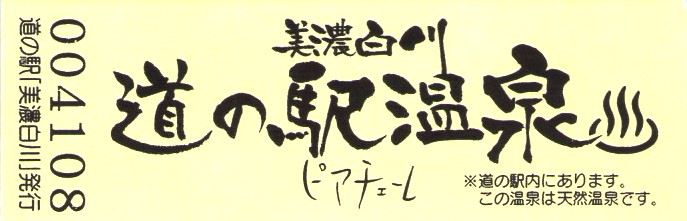 004108
道の駅「美濃白川」発行
美濃白川
道の駅温泉
ピアチェーレ
※道の駅内にあります。
この温泉は天然温泉です。